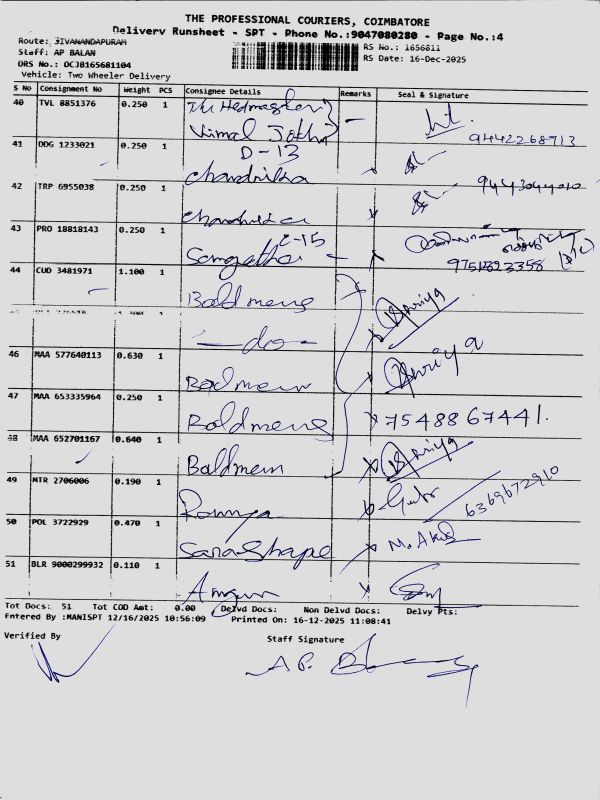 THE PROFESSIONAL COURIERS, COIMBATORE
Delivery Runsheet - SPT - Phone No.:9047080280 - Page No.:4
Route: SIVANANDAPURAM
RS No.: 1656811
Staff: AP BALAN
RS Date: 16-Dec-2025
DRS No.: DCJB165681104
Vehicle: Two Wheeler Delivery
S No Consignment No Weight PCS Consignee Details Remarks Seal & Signature
40 TVL 8851376 0.250 1
Vimal Jothi
9442268713
41 DDG 1233021 0.250 1 D-13
Chandrika
42 TRP 6955038 0.250 1
Chandrika
43 PRO 18818143 0.250 1 C-15
Sangatha
9751823358
44 CUD 3481971 1.100 1 Boldmens
Hariya
-do-
46 MAA 577640113 0.630 1
Boldmen
47 MAA 653335964 0.250 1
Boldmens 7548867441.
48 MAA 652701167 0.640 1
Boldmen
49 MTR 2706006 0.190 1
Ramya
6369672910
50 POL 3722929 0.470 1
Sara Shape M. Akil
51 BLR 9000299932 0.110 1
Tot Docs: 51 Tot COD Amt: 0.00 Delvd Docs: Non Delvd Docs: Delvy Pts:
Entered By :MANISPT 12/16/2025 10:56:09 Printed On: 16-12-2025 11:08:41
Verified By Staff Signature